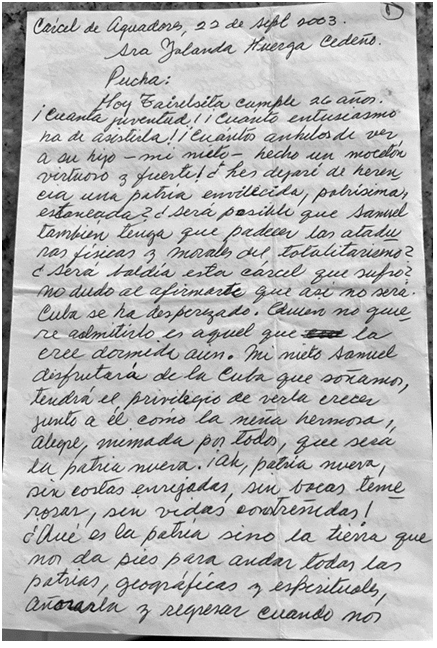 1
Cárcel de Aguadores, 22 de sept 2003.
Sra Yolanda Huerga Cedeño.
Pucha:
Hoy Tairelsita cumple 26 años.
¡Cuánta juventud! ¡Cuánto entusiasmo
ha de asistirla! ¡Cuántos anhelos de ver
a su hijo - mi nieto - hecho un mocetón
virtuoso y fuerte! ¿Les dejaré de heren
cia una patria envilecida, pobrísima,
estancada? ¿Será posible que Samuel
también tenga que padecer las atadu
ras físicas y morales del totalitarismo?
¿Será baldía esta cárcel que sufro?
no dudo al afirmarte que así no será.
Cuba se ha desperezado. Quien no quie
re admitirlo es aquel que la
cree dormida aún. Mi nieto Samuel
disfrutará de la Cuba que soñamos,
tendrá el privilegio de verla crecer
junto a él como la niña hermosa,
alegre, mimada por todos, que será
la patria nueva. ¡Ah, patria nueva,
sin costas enrejadas, sin bocas teme
rosas, sin vidas contenidas!
¿Qué es la patria sino la tierra que
nos da pies para andar todas las
patrias, geográficas y espirituales,
añorarla y regresar cuando nos